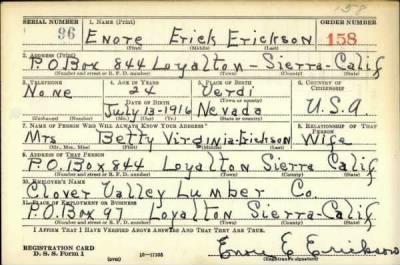 158
SERIAL NUMBER 1. NAME (Print) ORDER NUMBER
96 Enore Erick Erickson 158
(First) (Middle) (Last)
2. ADDRESS (Print)
P.O. Box 844 Loyalton - Sierra - Calif
(Number and street or R. F. D. number) (Town) (County) (State)
3. TELEPHONE 4. AGE IN YEARS 5. PLACE OF BIRTH 6. COUNTRY OF CITIZENSHIP
None 24 Verdi
DATE OF BIRTH (Town or county)
July 13-1916 Nevada U.S.A.
(Exchange) (Number) (Mo.) (Day) (Yr.) (State or country)
7. NAME OF PERSON WHO WILL ALWAYS KNOW YOUR ADDRESS 8. RELATIONSHIP OF THAT PERSON
Mrs Betty Virginia-Erickson Wife
(Mr., Mrs., Miss) (First) (Middle) (Last)
9. ADDRESS OF THAT PERSON
P.O. Box 844 Loyalton Sierra Calif
(Number and street or R. F. D. number) (Town) (County) (State)
10. EMPLOYER'S NAME
Clover Valley Lumber Co.
11. PLACE OF EMPLOYMENT OR BUSINESS
P.O. Box 97 Loyalton Sierra-Calif
(Number and street or R. F. D. number) (Town) (County) (State)
I AFFIRM THAT I HAVE VERIFIED ABOVE ANSWERS AND THAT THEY ARE TRUE.
REGISTRATION CARD
D. S. S. Form 1 (over) 16-17105 Enore E Erickson
(Registrant's signature)